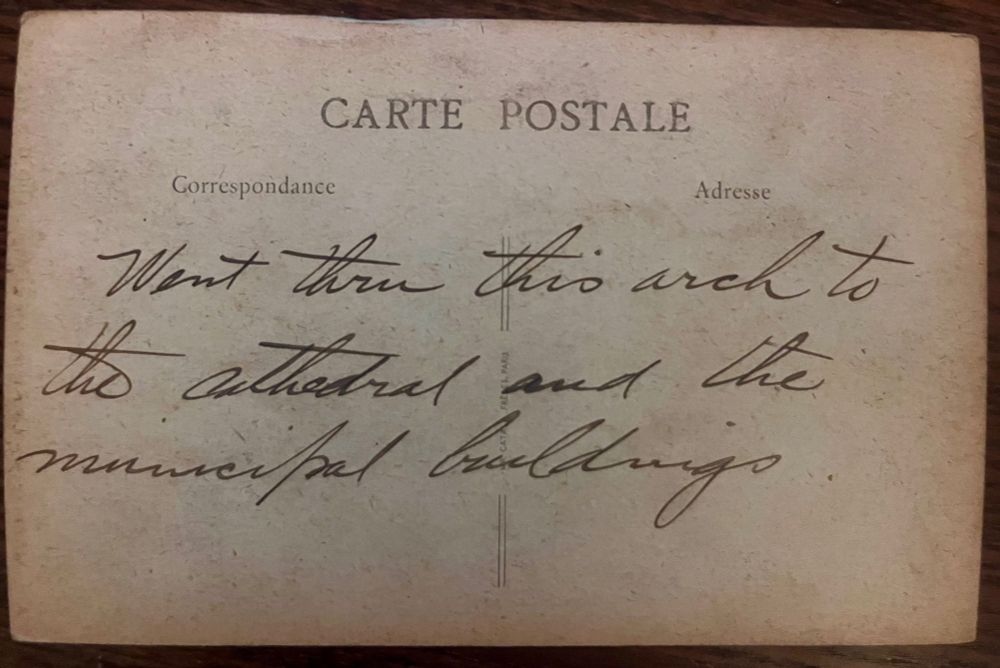 CARTE POSTALE
Correspondance
Adresse
Went thru this arch to
the cathedral and the
municipal buildings